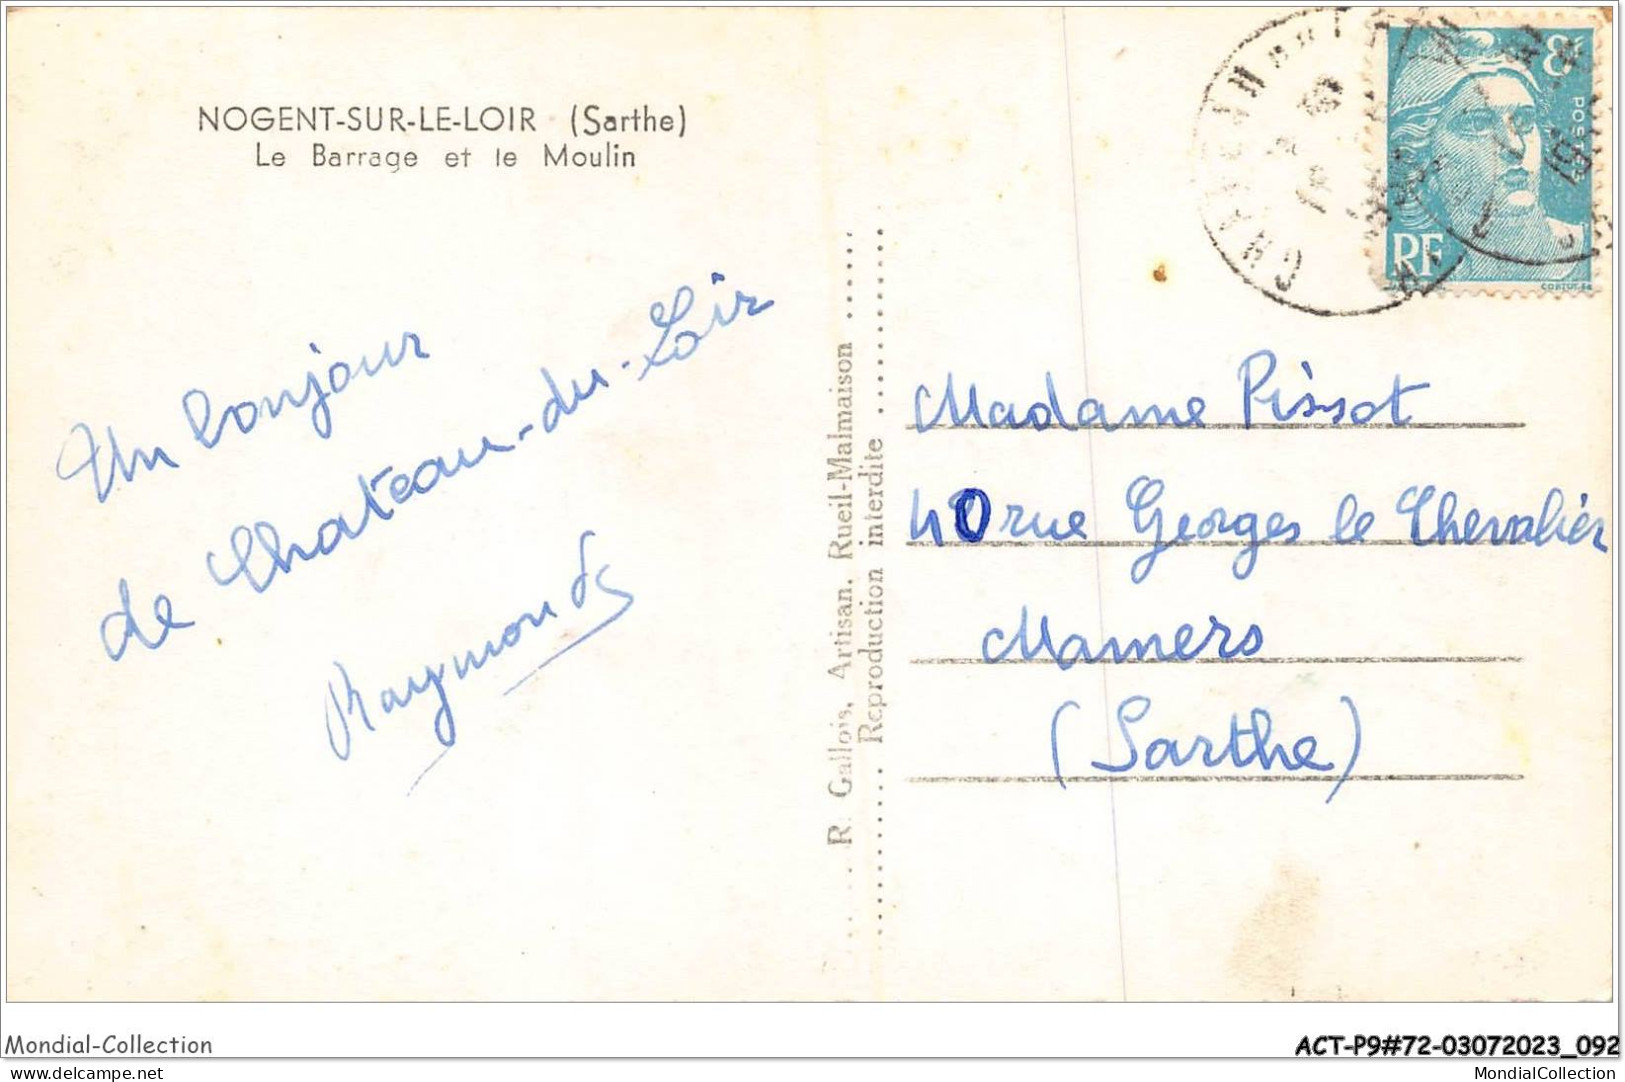 NOGENT-SUR-LE-LOIR (Sarthe)
Le Barrage et le Moulin
Un bonjour
de Chateau-du-Loir
Raymonde
R. Gallois, Artisan, Rueil-Malmaison
Reproduction interdite
8f
POSTES
RF
Madame Pissot
40 rue Georges le Chevalier
Mamers
(Sarthe)
Mondial-Collection
ACT-P9#72-03072023_092
delcampe.net
MondialCollection